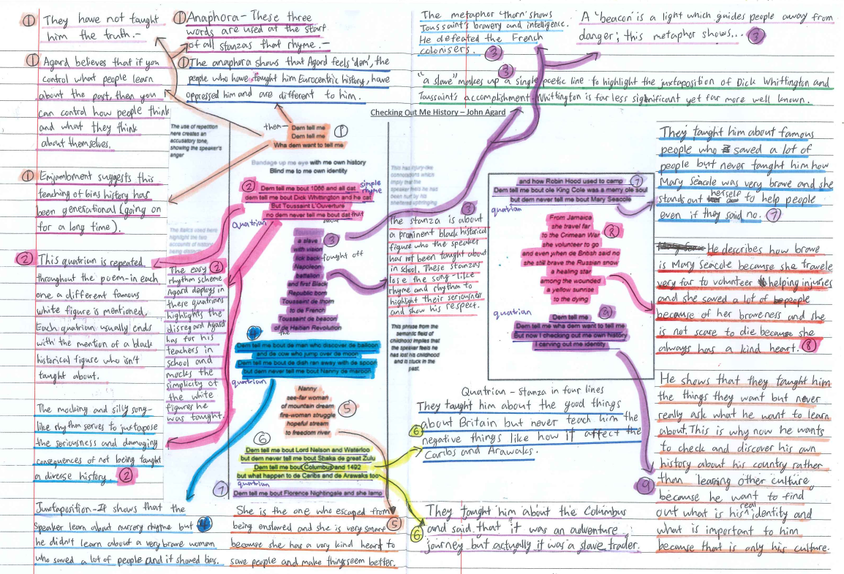 ① They have not taught
him the truth.-
① Agard believes that if you
control what people learn
about the past, then you
can control how people think
and what they think
about themselves.
① Enjambment suggests this
teaching of bias history has
been generational (going on
for a long time).
② This quatrian is repeated
throughout the poem-in each
one a different famous
white figure is mentioned.
Each quatrian usually ends
with the mention of a black
historical figure who isn't
taught about.
The mocking and silly song-
like rhythm serves to juxtapose
the seriousness and damaging
consequences of not being taught
a diverse history. ②
Juxtaposition- It shows that the
speaker learn about nursery rhyme but
he didn't learn about a very brave women
who saved a lot of people and it showed bias.
① Anaphora - These three
words are used at the start
of all stanzas that rhyme.-
① The anaphora shows that Agard feels 'dem', the
people who have taught him Eurocentric history, have
oppressed him and are different to him.
The use of repetition
here creates an
accusatory tone,
showing the speaker's
anger
them-
Dem tell me
Dem tell me
Wha dem want to tell me
①
Bandage up me eye with me own history
Blind me to me own identity
②
Dem tell me bout 1066 and all dat
dem tell me bout Dick Whittington and he cat
But Toussaint L'Ouverture
no dem never tell me bout dat
simple
rhyme
quatrian
② The easy
rhyme scheme
Agard deploys in
these quatrian
highlights the
disregard Agard
has for his
teachers in
school and
mocks the
simplicity of
the white
figures he
was taught.
③
a slave
with vision
lick back
Napoleon
battalion
and first Black
Republic born
Toussaint de thorn
to de French
Toussaint de beacon
of de Haitian Revolution
fought off
Dem tell me bout de man who discover de balloon
and de cow who jump over de moon
Dem tell me bout de dish ran away with de spoon
but dem never tell me bout Nanny de maroon
quatrian
Nanny
see-far woman
of mountain dream
fire-woman struggle
hopeful stream
to freedom river
⑤
⑥
Dem tell me bout Lord Nelson and Waterloo
but dem never tell me bout Shaka de great Zulu
Dem tell me bout Columbus and 1492
but what happen to de Caribs and de Arawaks too
quatrian
⑦ Dem tell me bout Florence Nightingale and she lamp
She is the one who escaped from
being enslaved and she is very smart ⑤
because she has a very kind heart to
save people and make they seem better.
The metaphor 'thorn' shows
Toussaint's bravery and intelligence.
He defeated the French
colonisers.
③
A 'beacon' is a light which guides people away from
danger; this metaphor shows... ③
③
"a slave" makes up a single poetic line to highlight the juxtaposition of Dick Whittington and
Toussaint's accomplishment. Whittington is far less significant yet far more well known.
Checking Out Me History – John Agard
③
The stanza is about
a prominent black historical
figure who the speaker
has not been taught about
in school. These stanzas
lose the song-like
rhyme and rhythm to
highlight their seriousness
and show his respect.
This phrase from the
semantic field of
childhood implies that
the speaker feels he
has lost his childhood
and is stuck in the
past.
and how Robin Hood used to camp
Dem tell me bout ole King Cole was a merry ole soul
but dem never tell me bout Mary Seacole
⑦
quatrian
From Jamaica
she travel far
to the Crimean War
she volunteer to go
and even when de British said no
she still brave the Russian snow
a healing star
among the wounded
a yellow sunrise
to the dying
⑧
quatrian
⑨
Dem tell me
Dem tell me wha dem want to tell me
But now I checking out me own history
I carving out me identity
Quatrian - Stanza in four lines
They taught him about the good things
about Britain but never teach him the
⑥ negative things like how it affect the
Caribs and Arawaks.
They taught him about the Columbus
⑥ and said that it was an adventure
journey but actually it was a slave trader.
They taught him about famous
people who saved a lot of
people but never taught him how
Mary Seacole was very brave and she
stands out herself to help people
even if they said no. ⑦
He describes how brave
is Mary Seacole because she travels
very far to volunteer helping injuries
and she saved a lot of people
because of her braveness and she
is not scare to die because she
always has a kind heart. ⑧
He shows that they taught him
the things they want but never
really ask what he want to learn
about. This is why now he wants
to check and discover his own
history about his country rather
than learning other culture
⑨ because he want to find
out what is his real identity and
what is important to him
because that is only his culture.